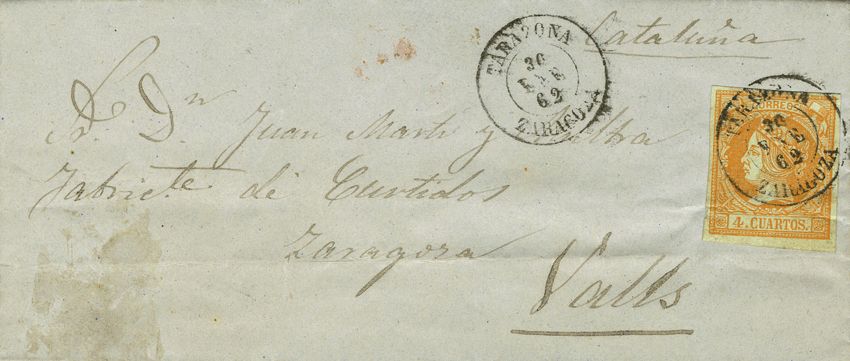 Cataluña
TARAZONA
30
ENE
62
ZARAGOZA
CORREOS
TARAZONA
30
ENE
62
ZARAGOZA
4 CUARTOS.
Sr. Dn Juan Marti y
Fabricte de Curtidos
Zaragoza
Valls